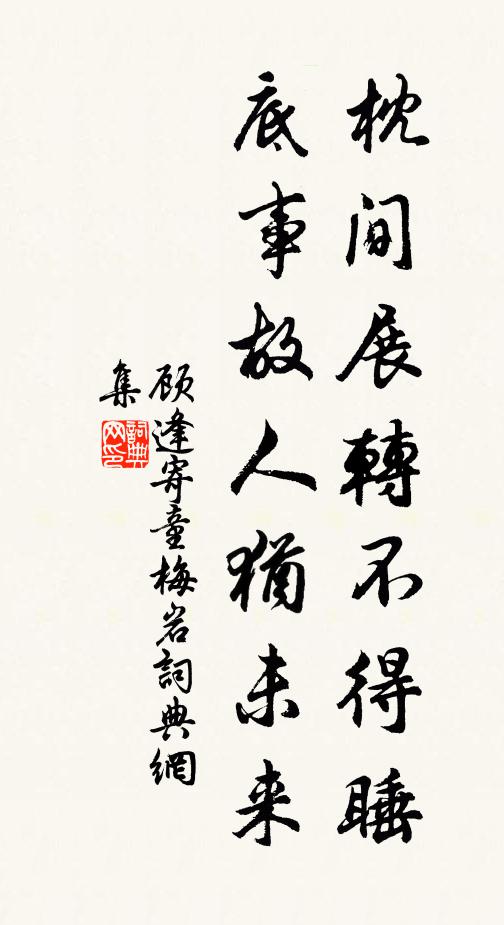 枕间展轉不得睡
底事故人猶未来
顾逢寄童梅岩詞典網
集
詞典
网印